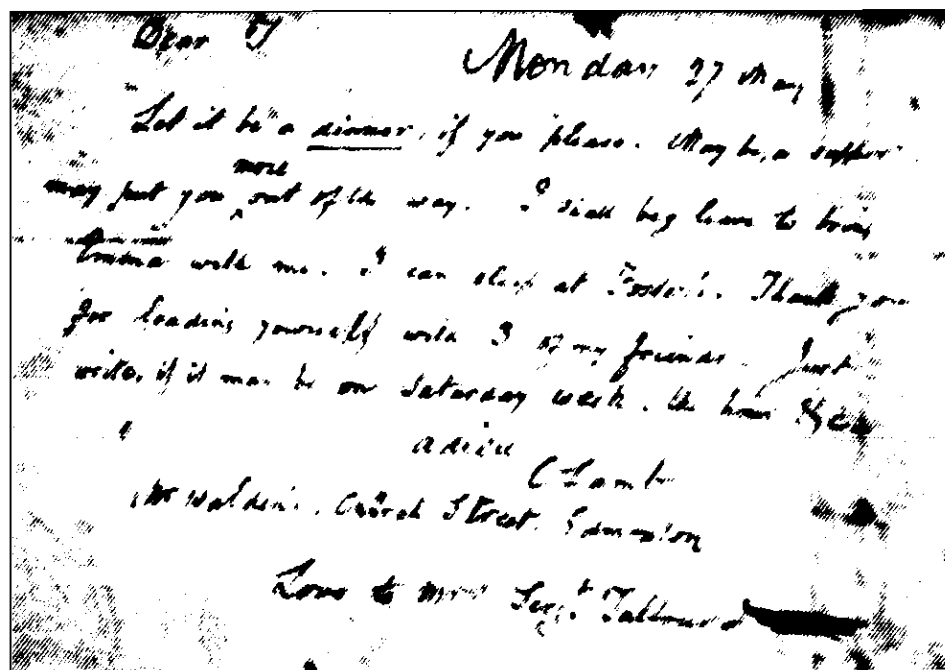 Dear
Monday 27 May
Let it be a dinner, if you please. May be, a supper
more
may put you ^ out of the way. I shall beg leave to bring
Emma with me. I can sleep at Foster's. Thank you
for loading yourself with 3 of my friends. Just
write, if it may be on Saturday week. the hour &c
adieu
C Lamb
Mr Walden's. Church Street. Edmonton
Love to Mrs Serjt. Talfourd